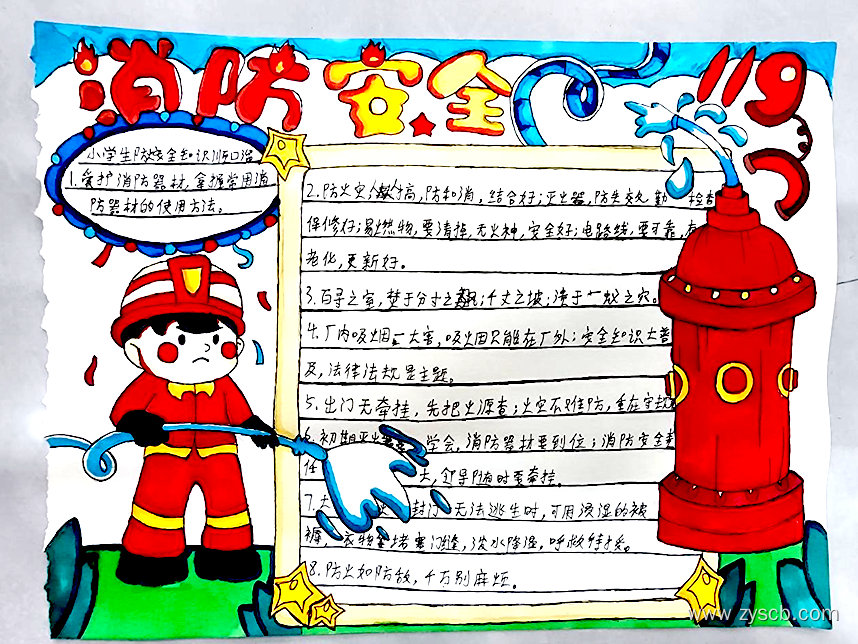 消防安全 119
小学生防安全知识顺口溜
1.爱护消防器材,掌握常用消
防器材的使用方法。
2.防火灾人人 高,防和消,结合好;灭火器,防失效,勤 检查
保修好;易燃物,要清掉,无火神,安全好;电路线,要可靠,有
老化,更新好。
3.百寻之室,焚于分寸之飚;千丈之坡;溃于一蚁之穴。
4.厂内吸烟一大害,吸烟只能在厂外;安全知识大普
及,法律法规是主题。
5.出门无牵挂,先把火源查;火灾不难防,重在守规
6.初期灭火 学会,消防器材要到位;消防安全
任 大,领导随时要牵挂。
7. 火 封门 无法逃生时,可用浸湿的被
褥,衣物 堵塞门缝,泼水降温,呼救待援。
8.防火如防敌,千万别麻烦。
www.zyscb.com